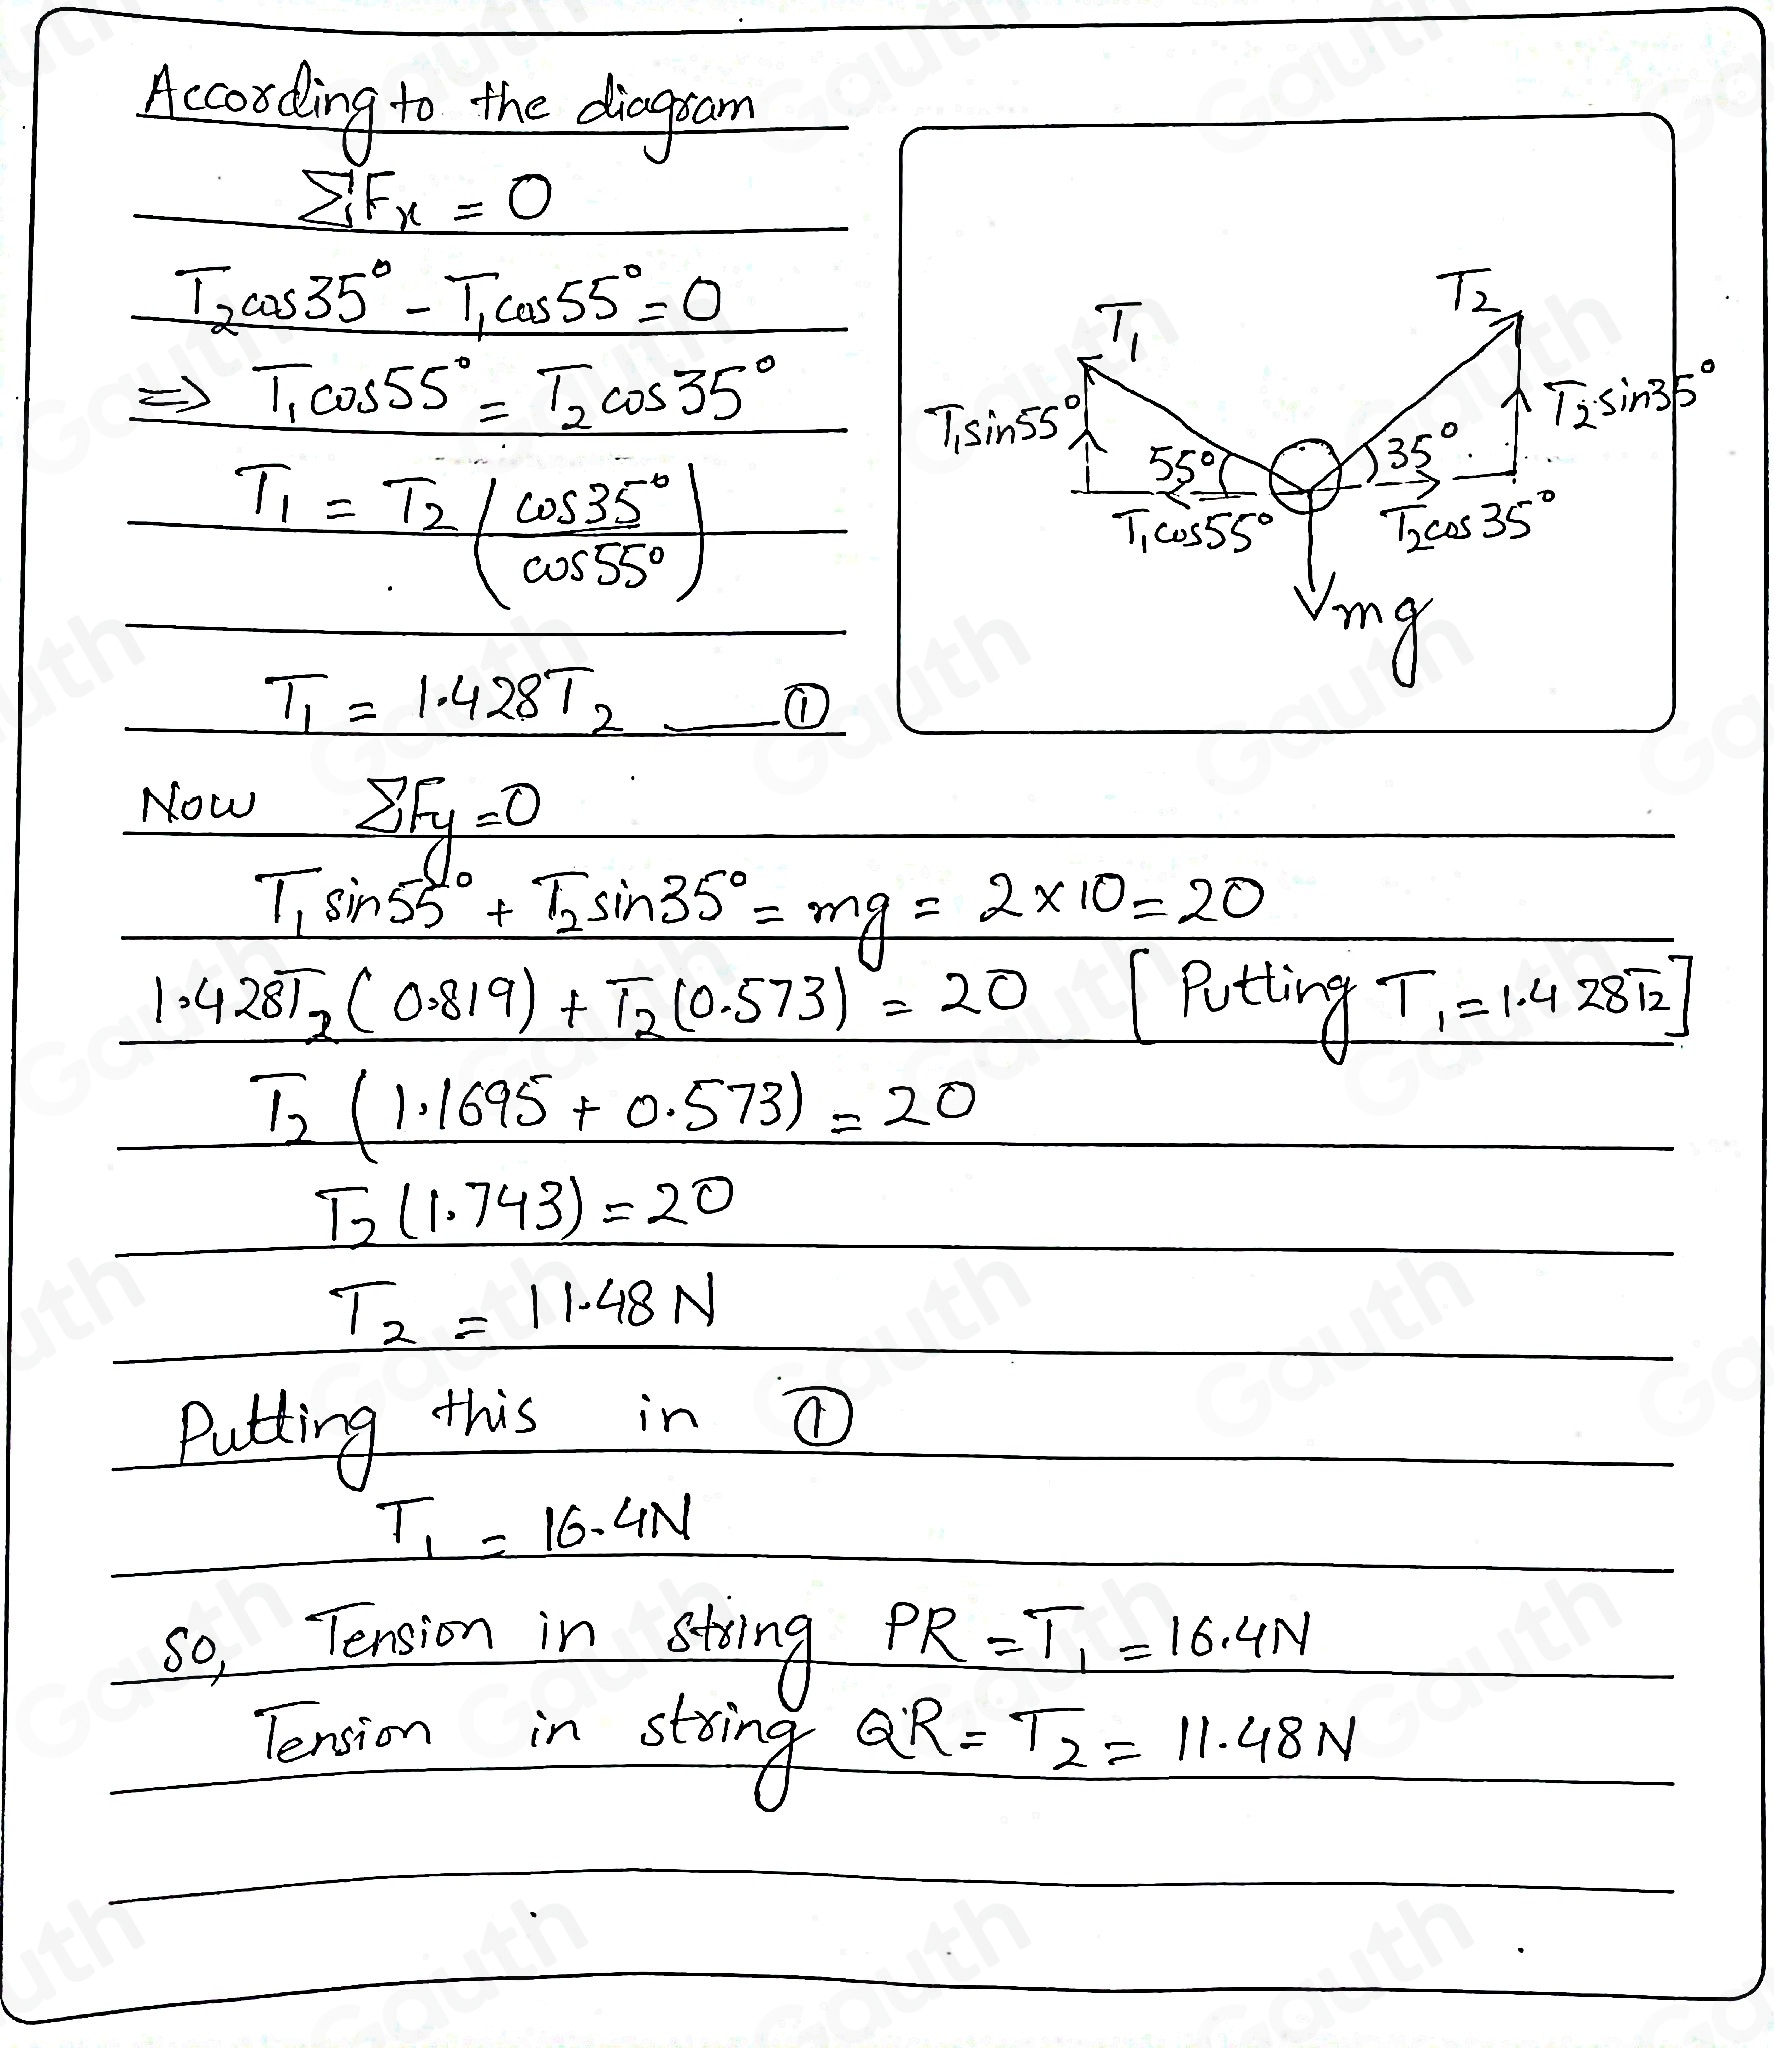 According to the diagram
ΣFx = 0
T₂cos35° - T₁cos55° = 0
⇒ T₁cos55° = T₂cos35°
T₁ = T₂ (cos35° / cos55°)
T₁ = 1.428T₂ —— ①
T₁
T₂
T₁sin55°
T₂sin35°
55°
35°
T₁cos55°
T₂cos35°
mg
Now ΣFy = 0
T₁sin55° + T₂sin35° = mg = 2 × 10 = 20
1.428T₂(0.819) + T₂(0.573) = 20 [Putting T₁ = 1.428T₂]
T₂ (1.1695 + 0.573) = 20
T₂ (1.743) = 20
T₂ = 11.48 N
Putting this in ①
T₁ = 16.4N
so, Tension in string PR = T₁ = 16.4N
Tension in string QR = T₂ = 11.48N
Gauth